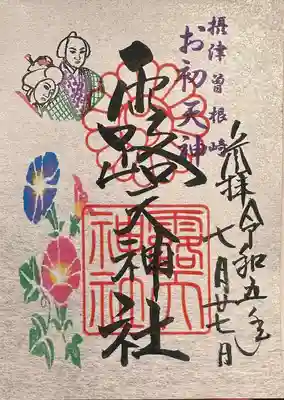 奉拝
令和五年
七月廿七日
摂津曽根崎
お初天神
露天神社
露天
神社